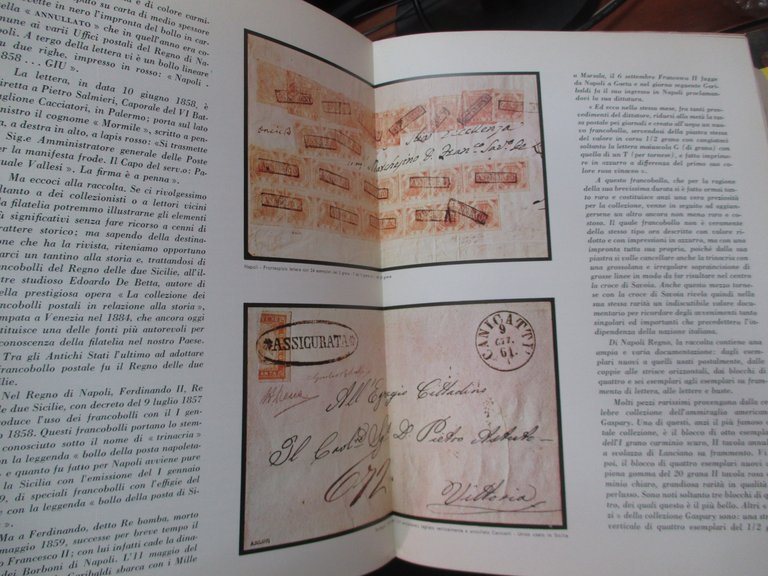 e di colore carmi-
apato su carta di medio spessore
cette in nero l'impronta del bollo in car-
ella « ANNULLATO » che in quell'anno era co-
mune ai varii Uffici postali del Regno di Na-
poli. A tergo della lettera vi è un bollo lineare
due righe, impresso in rosso: « Napoli
858 ... GIU ».
La lettera, in data 10 giugno 1858, è
diretta a Pietro Salmieri, Caporale del VI Bat-
taglione Cacciatori, in Palermo; porta sul lato
inistro il cognome « Mormile », scritto a pen-
a, a destra in alto, a lapis rosso: «Si trasmette
Sig.e Amministratore generale delle Poste
per la manifesta frode. Il Capo del serv.o: Pa-
quale Vallesi ». La firma è a penna ».
Ma eccoci alla raccolta. Se ci rivolgessimo
oltanto a dei collezionisti o a lettori vicini
lla filatelia potremmo illustrarne gli elementi
iù significativi senza far ricorso a cenni di
arattere storico; ma sapendo della destina-
ione che ha la rivista, riteniamo opportuno
farci un tantino alla storia e, trattandosi di
ancobolli del Regno delle due Sicilie, all'il-
stre studioso Edoardo De Betta, autore di
ella prestigiosa opera « La collezione dei
ancobolli postali in relazione alla storia »,
mpata a Venezia nel 1884, che ancora oggi
stituisce una delle fonti più autorevoli per
conoscenza della filatelia nel nostro Paese.
Tra gli Antichi Stati l'ultimo ad adottare
rancobollo postale fu il Regno delle due
Sicilie.
« Nel Regno di Napoli, Ferdinando II, Re
le due Sicilie, con decreto del 9 luglio 1857
troduce l'uso dei francobolli con il I gen-
o 1858. Questi francobolli portano lo stem-
conosciuto sotto il nome di « trinacria »
n la leggenda « bollo della posta napoleta-
» e quanto fu fatto per Napoli avviene pure
la Sicilia con l'emissione del I gennaio
9, di speciali francobolli con l'effigie del
con la leggenda « bollo della posta di Si-
».
« Ma a Ferdinando, detto Re bomba, morto
maggio 1859, successe per breve tempo il
Francesco II; con lui infatti cade la dina-
dei Borboni di Napoli. L'11 maggio del
Garibaldi sbarca con i Mille
ANNULLATO
Sua Eccellenza
Napoli - Frontespizio lettera con 24 esemplari
ASSIGURATA
CANICATTI
9
GIU.
61.
All'Egregio Cittadino
Il Cav. Sig. D. Pietro Astuto
672
Vittoria
a Marsala, il 6 settembre Francesco II fugge
da Napoli a Gaeta e nel giorno seguente Gari-
baldi fa il suo ingresso in Napoli proclaman-
dosi la sua dittatura.
« Ed ecco nello stesso mese, fra tanti prov-
vedimenti del dittatore, ridursi alla metà la tas-
sa postale pei giornali e creato all'uopo un nuo-
vo francobollo, servendosi della piastra stessa
del valore in corso 1/2 grana con cangiatevi
soltanto la lettera maiuscola G (di grana) con
quella di un T (per tornese), e fatto imprime-
re in azzurro a differenza del primo suo colo-
re rosa vinaceo ».
A questo francobollo, che per la ragione
della sua brevissima durata si è fatto ormai tan-
to raro e costituisce anzi una vera preziosità
per la collezione, venne in seguito ad aggiun-
gersene un altro ancora non meno raro e co-
stoso. Il quale francobollo non è veramente
dello stesso tipo ora descritto con colore ri-
dotto e con impressioni in azzurro, ma con una
impronta tutta sua propria, poiché dalla sua
piastra si volle cancellare anche la trinacria con
una grossolana e irregolare soprapposizione di
grosse linee in modo da far risaltare nel centro
la croce di Savoia. Anche questo mezzo torne-
se con la croce di Savoia rivela quindi nella
sua stessa rarità un indiscutibile valore docu-
mentario per ricordare degli avvenimenti tanto
singolari ed importanti che precedettero l'in-
dipendenza della nazione italiana.
Di Napoli Regno, la raccolta contiene una
ampia e varia documentazione: dagli esem-
plari nuovi a quelli usati postalmente, dalle
coppie alle strisce orizzontali, dai blocchi di
quattro e sei esemplari agli esemplari su fram-
mento di lettera, alle lettere e buste.
Molti pezzi rarissimi provengono dalla ce-
lebre collezione dell'ammiraglio americano
Gaspary. Uno di questi, anzi il più famoso di
tale collezione, è il blocco di otto esemplari
dell'I grano carminio scuro, II tavola annullato
a scolazzo di Lanciano su frammento. Vi è
poi, il blocco di quattro esemplari nuovi a
pien gomma del 20 grana II tavola rosa car-
minio chiaro, grandissima rarità in qualità
perlusso. Sono noti soltanto tre blocchi di quat-
tro, dei quali questo è il più bello. Altri «pezzi
della collezione Gaspary sono: una striscia
verticale di quattro esemplari del 1/2 grana